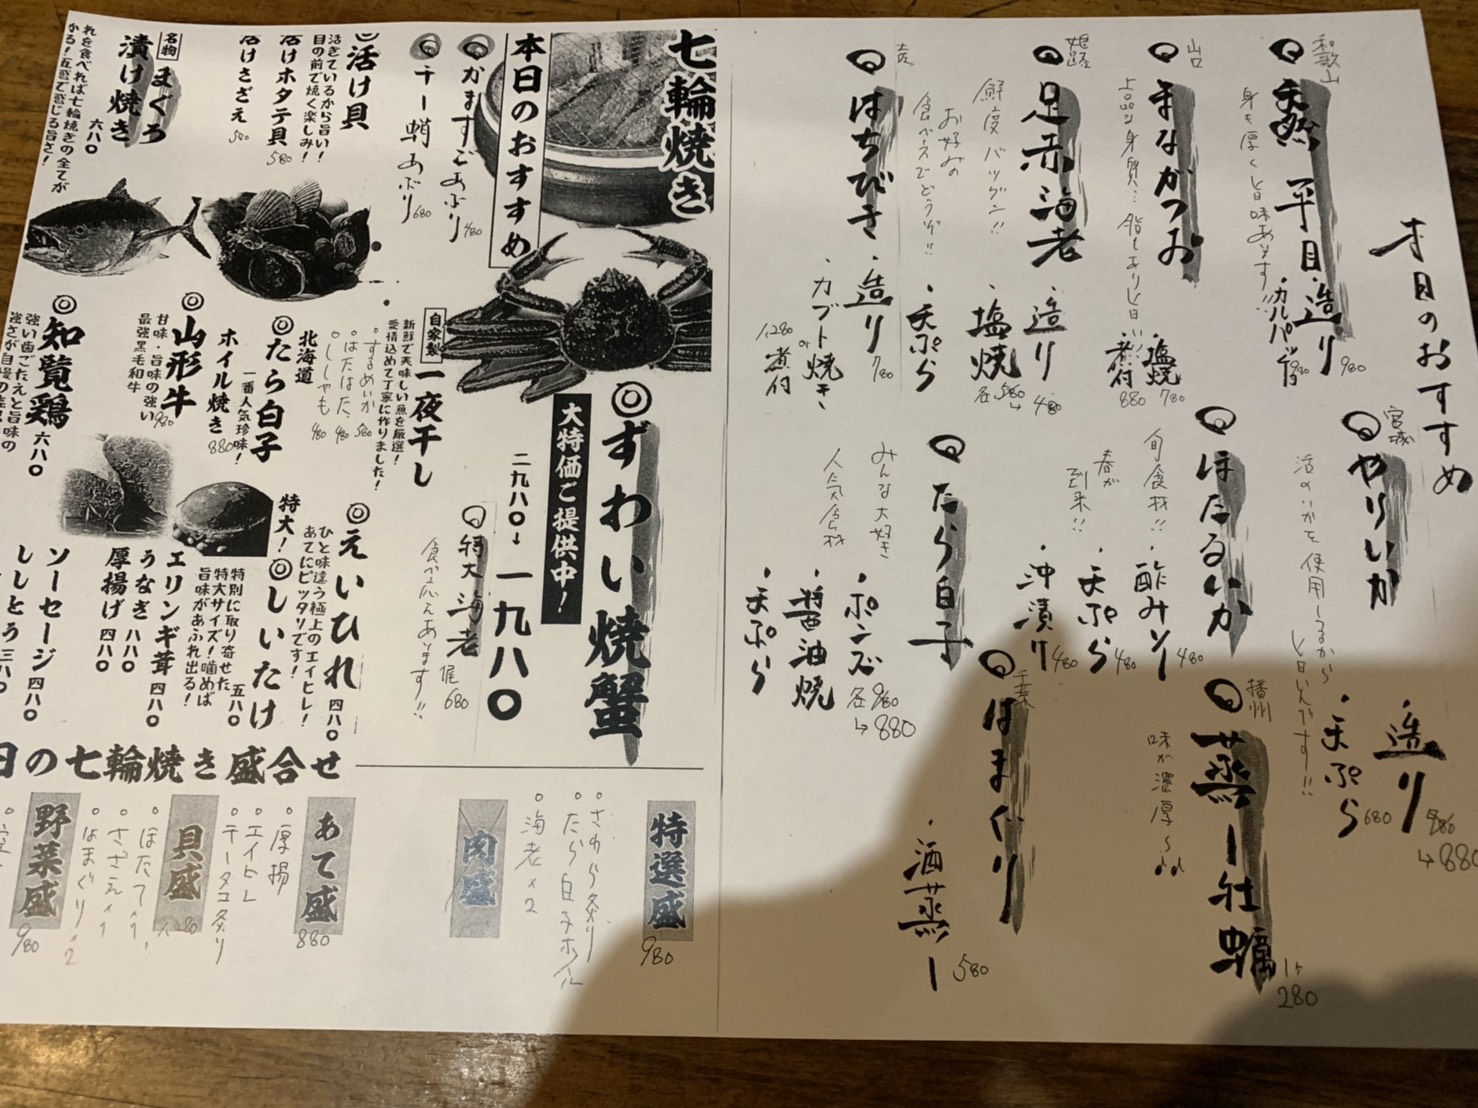 本日のおすすめ
和歌山
天然 平目
身も厚く旨味あります!!
・造り 980
・カルパッチョ 980
山口
まながつお
上品な身質…脂もあり旨い!!
・塩焼 780
・煮付 880
姫路
足赤海老
鮮度バツグン!!
・造り 480
・塩焼
・天ぷら
各580→480
はちびき
お好みの
食べ方でどうぞ!!
・造り 780
・カブト焼き
or
煮付
1280
宮城
やりいか
活のいかを使用してるから
旨いんです!!
・造り 980→880
・天ぷら 680
ほたるいか
旬食材!!
春が
到来!!
・酢みそ 480
・天ぷら 480
・沖漬け 480
たら白子
みんな大好き
人気食材
・ポンズ
・醤油焼
・天ぷら
各980→880
播州
蒸し牡蠣
味が濃厚〜
1ヶ 280
千葉
はまぐり
・酒蒸し 580
七輪焼き
本日のおすすめ
かますごあぶり 480
干し蛸あぶり 680
活け貝
活きているから旨い!
目の前で焼く楽しみ!
活けホタテ貝 580
活けさざえ 580
名物
まぐろ
漬け焼き
六八〇
れを食べれば七輪焼きの全てが
かる!五感で感じる旨さ!
ずわい焼蟹
大特価ご提供中!
二九八〇→一九八〇
自家製
一夜干し
新鮮で美味しい魚を厳選!
愛情込めて丁寧に作りました!
。するめいか 580
。はたはた 480
。ししゃも 480
特大海老
食べ応えあります!!
1尾 680
北海道
たら白子
一番人気珍味!
ホイル焼き
880
山形牛
甘味・旨味の強い
最強黒毛和牛
980
知覧鶏 六八〇
強い歯ごたえと旨味の
強さが自慢の
えいひれ 四八〇
ひと味違う極上のエイヒレ!
あてにピッタリです!
特大!
しいたけ
五八〇
特別に取り寄せた
特大サイズ!噛めば
旨味があふれ出る!
エリンギ茸 四八〇
うなぎ 八八〇
厚揚げ 四八〇
ソーセージ 四八〇
ししとう 三八〇
日の七輪焼き盛合せ
特選盛
980
。さわら炙り
。たら白子ホイル
。海老×2
肉盛
あて盛
880
。厚揚
。エイヒレ
。干しタコ炙り
貝盛
。ほたて×1
。さざえ×1
。はまぐり×2
野菜盛
980